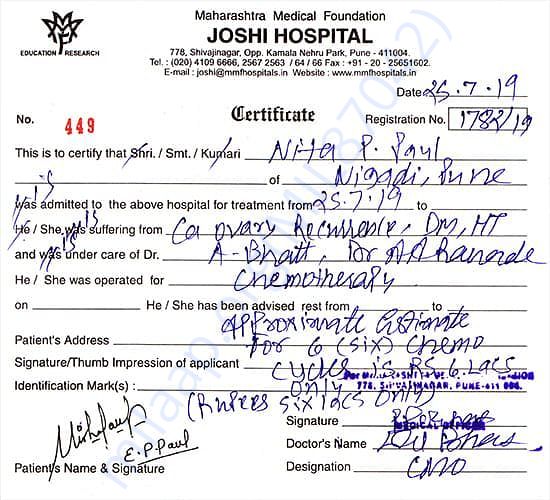 Maharashtra Medical Foundation
JOSHI HOSPITAL
EDUCATION RESEARCH
778, Shivajinagar, Opp. Kamala Nehru Park, Pune - 411004.
Tel. : (020) 4109 6666, 2567 2563 / 64 / 66 Fax : +91 - 20 - 25651602.
E-mail : joshi@mmfhospitals.in Website : www.mmfhospitals.in
Date 25.7.19
No. 449
Certificate
Registration No. 1782/19
This is to certify that Shri. / Smt. / Kumari Nita P. Paul
of Nigadi, Pune
is
was admitted to the above hospital for treatment from 25.7.19 to
is
He / She was suffering from Ca ovary Recurrence, DM, HT
is
and was under care of Dr. A-Bhatt, Dr AA Ranade
He / She was operated for Chemotherapy
on He / She has been advised rest from to
Approximate Estimate
Patient's Address for 6 (six) Chemo
Signature/Thumb Impression of applicant Cycles is RS 6. Lacs
Identification Mark(s) : only
778, SHIVAJINAGAR, PUNE-411 004.
(Rupees six lacs only)
Signature
MEDICAL OFFICER
E.P.Paul
Doctor's Name
Patient's Name & Signature
Designation CMO